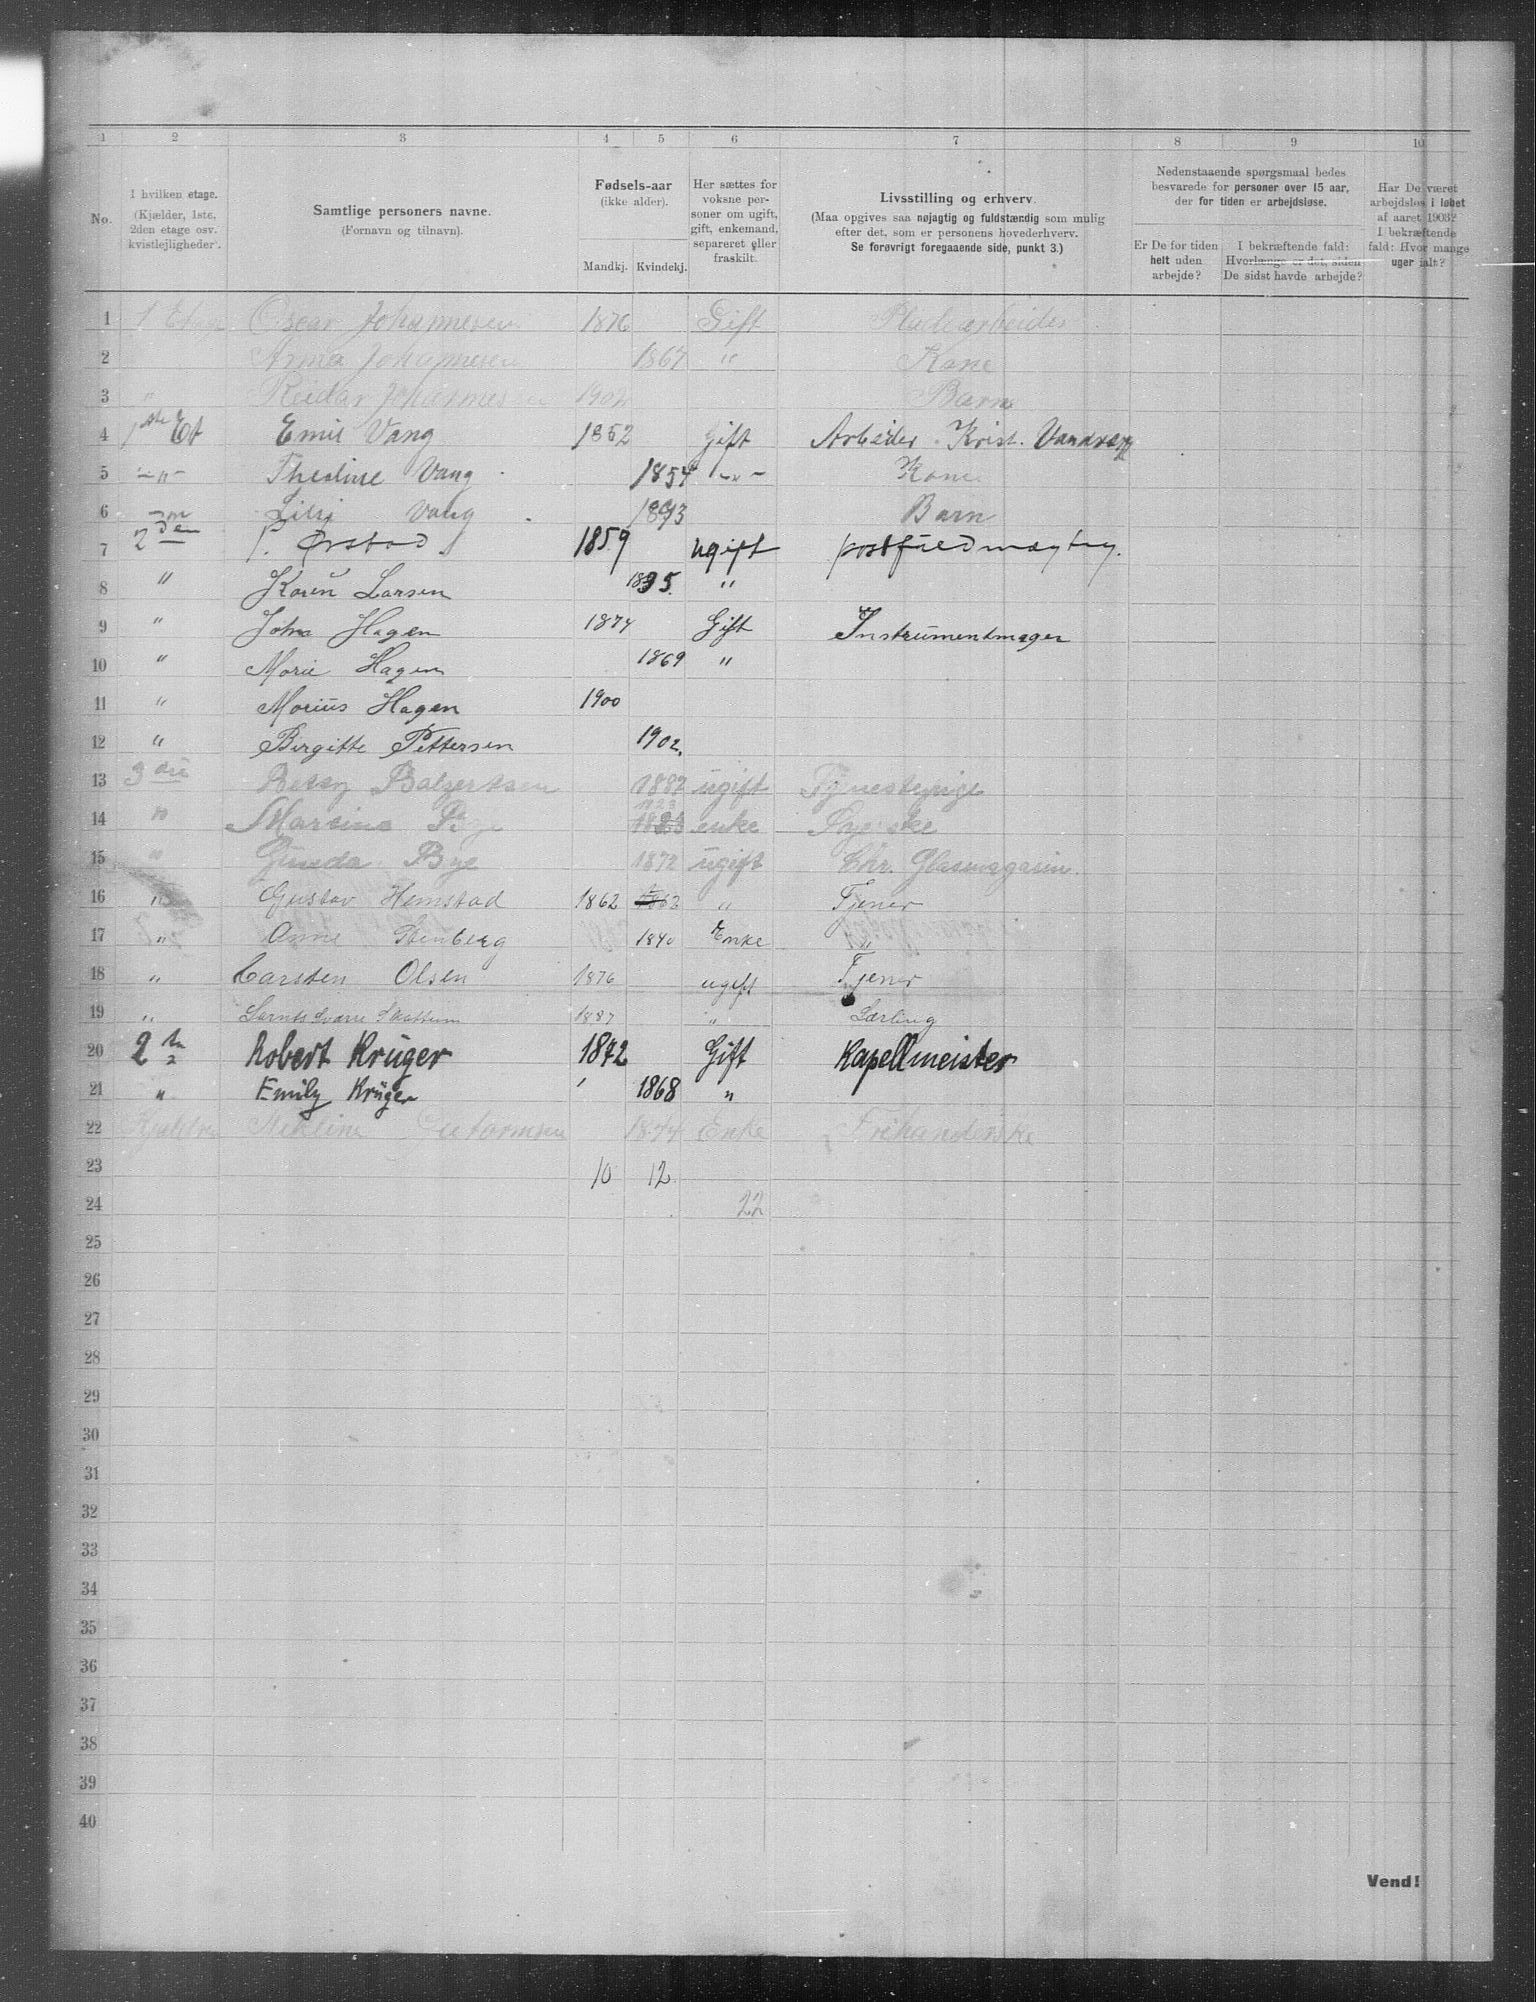 1 2 3 4 5 6 7 8 9 10
No.
I hvilken etage.
(Kjælder, 1ste,
2den etage osv.
kvistlejligheder).
Samtlige personers navne.
(Fornavn og tilnavn).
Fødsels-aar
(ikke alder).
Mandkj. Kvindekj.
Her sættes for
voksne per-
soner om ugift,
gift, enkemand,
separeret eller
fraskilt.
Livsstilling og erhverv.
(Maa opgives saa nøjagtig og fuldstændig som mulig
efter det, som er personens hovederhverv.
Se forøvrigt foregaaende side, punkt 3.)
Nedenstaaende spørgsmaal bedes
besvarede for personer over 15 aar,
der for tiden er arbejdsløse.
Er De for tiden
helt uden
arbejde?
I bekræftende fald:
Hvorlænge er det, siden
De sidst havde arbejde?
Har De været
arbejdsløs i løbet
af aaret 1903?
I bekræftende
fald: Hvor mange
uger ialt?
1 1 Etage Oscar Johannesen 1876 Gift Pladearbeider
2 Anna Johannesen 1867 " Kone
3 " Reidar Johannes 1902 Barn
4 1ste Et Emil Vang 1852 Gift Arbeider Krist. Vandvæg
5 -"- Thedine Vang 1854 -"- Kone
6 -"- Lilli Vang 1893 Barn
7 2den P. Ørstad 1859 ugift postfuldmægtig.
8 " Karen Larsen 35. "
9 " John Hagen 1874 Gift Instrumentmager
10 " Marie Hagen 1869 "
11 " Marius Hagen 1900
12 " Birgitte Pettersen 1902.
13 3die Betsy Balzersen 1887 ugift Tjenestepige
14 " Marsina Bye 1823 1823 enke Syerske
15 " Gunda Bye 1872 ugift Chr. Glasmagasin.
16 " Gustav Hemstad 1862 1862 " Tjener
17 " Anne Stenberg 1840 Enke "
18 " Carsten Olsen 1876 ugift Tjener
19 " Sverre Skattum 1887 " Lærling
20 2 Robert Krüger 1872 Gift Kapellmeister
21 " Emily Krüger 1868 "
22 Kjelder Guttormsen 1874 Enke Frihanderske
23 10 12
24 22
25
26
27
28
29
30
31
32
33
34
35
36
37
38
39
40
Vend!